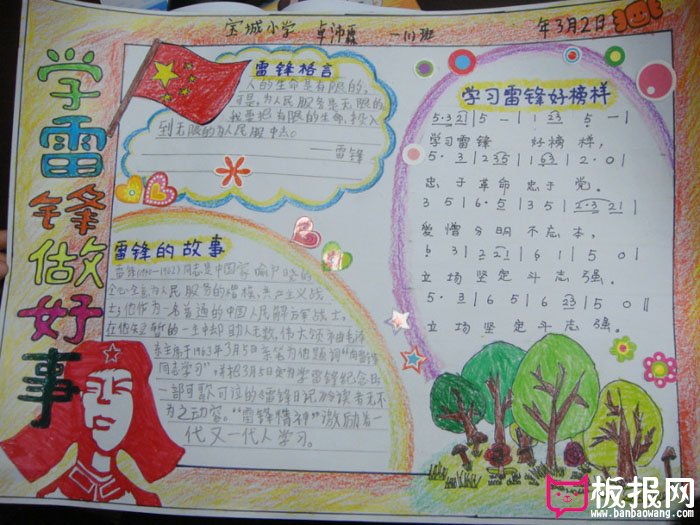 宝城小学 卓沛霖 一(1)班 年3月2日
学雷锋做好事
雷锋格言
人的生命是有限的，
可是，为人民服务是无限的
我要把有限的生命，投入
到无限的为人民服中去。
——雷锋
雷锋的故事
雷锋(1940—1962)同志是中国家喻户晓的
全心全意为人民服务的楷模、共产主义战
士；他作为一名普通的中国人民解放军战士，
在他短暂的一生中却助人无数，伟大领袖毛泽
东主席于1963年3月5日亲笔为他题词“向雷锋
同志学习”，并把3月5日定为学雷锋纪念日
一部可歌可泣的《雷锋日记》令读者无不
为之动容。“雷锋精神”激励着一
代又一代人学习。
学习雷锋好榜样
5·3 21 | 5 — | 1 23 5 — |
学习雷锋 好榜样，
5·3 | 235 | 1 63 | 2·0 |
忠于革命忠于党。
3 5 | 6·5 | 3 5 | 2·3 21 |
爱憎分明不忘本，
6 3 | 2122 | 6 1 | 5 0 |
立场坚定斗志强。
5·3 | 6 5 | 6 23 | 5 0 ‖
立场坚定斗志强。
板报网
www.banbaowang.com